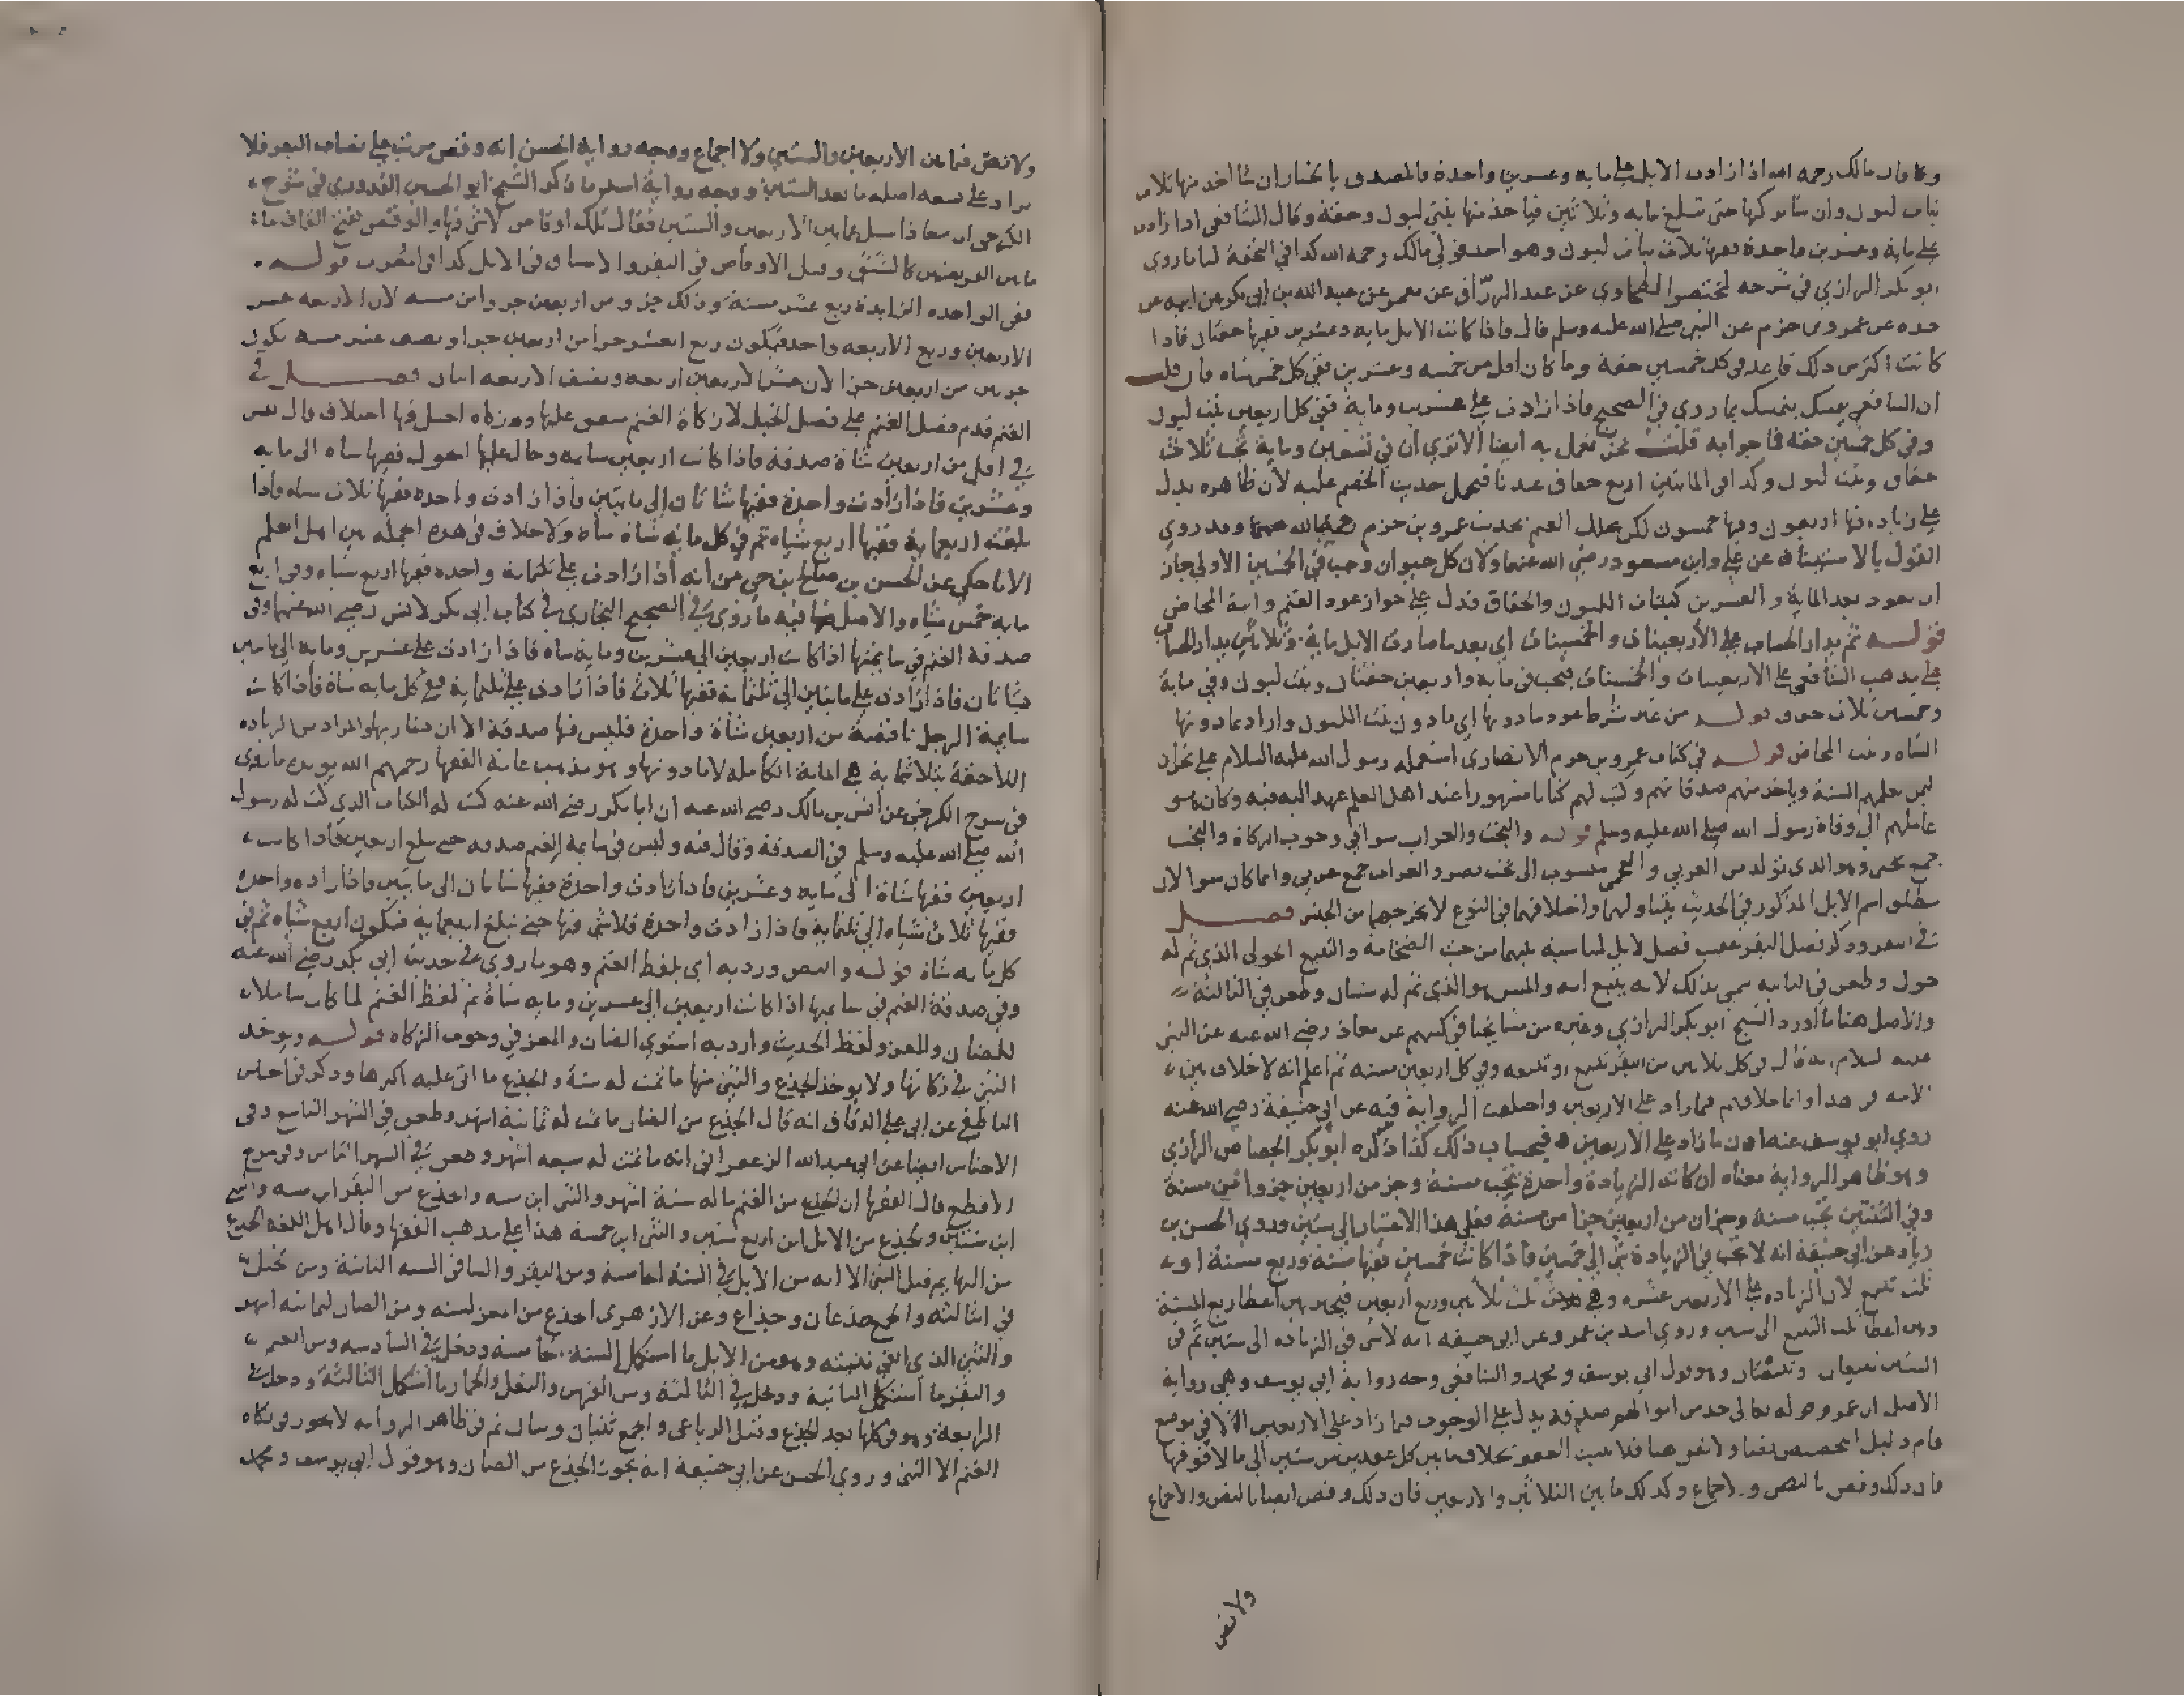 وقال مالك رحمه الله اذا زادت الابل على مايه وعشرين واحدة فالمصدق بالخيار ان شا اخذ منها ثلاث
بنات لبون وان شا تركها حتى تبلغ مايه وثلاثين فياخذ منها بنتي لبون وحقة وقال الشافعي اذا زادت
على مايه وعشرين واحدة ففيها ثلاث بنات لبون وهو احد قولي مالك رحمه الله كذا في التحفة لنا ما روى
ابو بكر الرازي في شرحه لمختصر الطحاوي عن عبد الرزاق عن معمر عن عبد الله بن ابي بكر عن ابيه عن
جده عن عمرو بن حزم عن النبي صلى الله عليه وسلم قال فاذا كانت الابل مايه وعشرين ففيها حقتان فاذا
كانت اكثر من ذلك فاعد في كل خمسين حقة وما كان اقل من خمسه وعشرين ففي كل خمس شاه فان قلت
ان الشافعي يتمسك بما روي في الصحيح فاذا زادت على عشرين وماية ففي كل اربعين بنت لبون
وفي كل خمسين حقه فما جوابه قلت نحن نعمل به ايضا الا ترى ان في تسعين وماية تجب ثلاث
حقاق وبنت لبون وكذا في المايتين اربع حقاق عندنا فيحمل حديث الخصم عليه لان ظاهره يدل
على زياده فيها اربعون وفيها خمسون لكن بحديث عمرو بن حزم وقد روي
القول بالاستيناف عن علي وابن مسعود رضي الله عنهما ولان كل حيوان وجب في الخمسين الاولى جاز
ان يعود بعد الماية والعشرين كبنات اللبون والحقاق فدل على جواز عود الغنم وابنة المخاض
قوله ثم يدار الحساب على الاربعينات والخمسينات اي بعد ما صارت الابل ماية وثلاثين يدار الحساب
على مذهب الشافعي على الاربعينات والخمسينات فيجب في مايه واربعين حقتان وبنت لبون وفي ماية
وخمسين ثلاث حقوق قوله من غير شرط عود ما دونها اي ما دون بنت اللبون واراد بما دونها
الشاه وبنت المخاض قوله في كتاب عمرو بن حزم الانصاري استعمله رسول الله عليه السلام على نجران
ليعلمهم السنة وياخذ منهم صدقاتهم وكتب لهم كتابا مشهورا عند اهل العلم عهد اليه فيه وكان هو
عاملهم الى وفاة رسول الله صلى الله عليه وسلم قوله والبخت والعراب سوا في وجوب الزكاة والبخت
جمع بختي وهو الذي تولد من العربي والعجمي منسوب الى بخت نصر والعراب جمع عربي وانما كان سوا لان
مطلق اسم الابل المذكور في الحديث يتناولهما واختلافهما في النوع لا يخرجهما من الجنس فصل
في البقر وذكر فصل البقر عقيب فصل الابل لمناسبة بينهما من حيث الضخامة والتبيع الحولي الذي تم له
حول وطعن في الثانيه سمي بذلك لانه يتبع امه والمسن هو الذي تم له سنتان وطعن في الثالثة
والاصل هنا ما اورد الشيخ ابو بكر الرازي وغيره من مشايخنا في كتبهم عن معاذ رضي الله عنه عن النبي
عليه السلام انه قال في كل ثلاثين من البقر تبيع او تبيعه وفي كل اربعين مسنه ثم اعلم انه لا خلاف بين
الامه في هذا وانما خلافهم فيما زاد على الاربعين واختلفت الرواية فيه عن ابي حنيفة رضي الله عنه
روى ابو يوسف عنه ان ما زاد على الاربعين فبحساب ذلك كذا ذكره ابو بكر الجصاص الرازي
وهو ظاهر الرواية معناه ان كانت الزيادة واحدة تجب مسنة وجز من اربعين جزوا من مسنة
وفي الثنتين تجب مسنة وجزان من اربعين جزا من مسنة فعلى هذا الاعتبار الى ستين وروى الحسن بن
زياد عن ابي حنيفة انه لا تجب في الزيادة شي الى خمسين فاذا كانت خمسين ففيها مسنة وربع مسنة او
ثلث تبيع لان الزياده على الاربعين عشره وهي ثلث ثلاثين وربع اربعين فيخير بين اعطا ربع المسنة
وبين اعطا ثلث التبيع الى ستين وروى اسد بن عمرو عن ابي حنيفه انه لا شي في الزياده الى ستين ثم في
الستين تبيعان وتبيعتان وهو قول ابي يوسف ومحمد والشافعي وجه رواية ابي يوسف وهي رواية
الاصل ان عموم قوله تعالى خذ من اموالهم صدقة يدل على الوجوب فيما زاد على الاربعين الا في موضع
قام دليل التخصيص فلا يثبت العفو بخلاف ما بين كل عقدين من ستين الى ما لا فوقها
فان ذلك وقص بالنص والاجماع وكذلك ما بين الثلاثين والاربعين فان ذلك وقص ايضا بالنص والاجماع
ولا نص
ولا نص فيما بين الاربعين والستين ولا اجماع ووجه رواية الحسن انه وقص مرتب على نصاب البقر فلا
يزاد على تسعه اصله ما بعد الستين ووجه رواية اسد ما ذكر الشيخ ابو الحسين القدوري في شرح
الكرخي ان معاذا سئل عما بين الاربعين والستين فقال تلك اوقاص لا شي فيها والوقص بفتح القاف ما
ما بين الفريضتين كالشنق وقيل الاوقاص في البقر والاشناق في الابل كذا في المغرب قوله
ففي الواحده الزايدة ربع عشر مسنة وذلك جز ومن اربعين جزوا من مسنه لان الاربعه عشر
الاربعين وربع الاربعه واحد فيكون ربع العشر جزوا من اربعين جزوا ونصف عشر مسنه يكون
جزوين من اربعين جزا لان عشر الاربعين اربعه ونصف الاربعه اثنان فصل في
الغنم قدم فصل الغنم على فصل الخيل لان زكاة الغنم متفق عليها وزكاه الخيل فيها اختلاف قال ليس
في اقل من اربعين شاة صدقة فاذا كانت اربعين سايمه وحال عليها الحول ففيها شاه الى مايه
وعشرين فاذا زادت واحدة ففيها شاتان الى مايتين فاذا زادت واحده ففيها ثلاث شياه فاذا
بلغت اربعماية ففيها اربع شياه ثم في كل مايه شاة شاه ولا خلاف في هذه الجمله بين اهل العلم
الا ما حكي عن الحسن بن صالح بن حي من انه اذا زادت على ثلثمايه واحده ففيها اربع شياه وفي اربع
مايه خمس شياه والاصل فيه ما روي في الصحيح البخاري في كتاب ابي بكر لانس رضي الله عنهما وفي
صدقة الغنم في سايمتها اذا كانت اربعين الى عشرين وماية شاه فاذا زادت على عشرين ومايه الى مايتين
شاتان فاذا زادت على مايتين الى ثلثمايه ففيها ثلاث فاذا زادت على ثلثمايه ففي كل مايه شاة فاذا كانت
سايمة الرجل ناقصة من اربعين شاة واحدة فليس فيها صدقة الا ان يشا ربها والمراد من الزياده
اللاحقة بثلاثمايه هي الماية الكامله لا ما دونها وهو مذهب عامة الفقها رحمهم الله يويده ما روى
في شرح الكرخي عن انس بن مالك رضي الله عنه ان ابا بكر رضي الله عنه كتب له الكتاب الذي كتب له رسول
الله صلى الله عليه وسلم في الصدقة وقال فيه وليس في سايمة الغنم صدقه حتى تبلغ اربعين فاذا كانت
اربعين ففيها شاة الى مايه وعشرين فاذا زادت واحدة ففيها شاتان الى مايتين فاذا زاده واحده
ففيها ثلاث شياه الى ثلثماية فاذا زادت واحدة فلا شي فيها حتى تبلغ اربعماية فيكون اربع شياه ثم في
كل مايه شاة قوله والنص ورد به اي بلفظ الغنم وهو ما روي في حديث ابي بكر رضي الله عنه
وفي صدقة الغنم في سايمتها اذا كانت اربعين الى عشرين ومايه شاة ثم لفظ الغنم لما كان شاملا
للضان وللمعز ولفظ الحديث وارد به استوى الضان والمعز في وجوب الزكاه قوله ويوخذ
الثني في زكاتها ولا يوخذ الجذع والثني منها ما تمت له سنة والجذع ما اتى عليه اكثرها وذكر في اجناس
الناطفي عن ابي علي الدقاق انه قال الجذع من الضان ما تمت له ثمانية اشهر وطعن في الشهر التاسع وفي
الاجناس ايضا عن ابي عبد الله الزعفراني انه ما تمت له سبعه اشهر وطعن في الشهر الثامن وفي شرح
الاقطع قال الفقها ان الجذع من الغنم ما له ستة اشهر والثني ابن سنه والجذع من البقر ابن سنه والثني
ابن سنتين والجذع من الابل ابن اربع سنين والثني ابن خمسه هذا على مذهب الفقها وقال اهل اللغه الجذع
من البهايم قبل الثني الا انه من الابل في السنة الخامسة ومن البقر والشا في السنه الثانية ومن الخيل
في الثالثه والجمع جذعان وجذاع وعن الازهري الجذع من المعز لسنه ومن الضان لثمانيه اشهر
والثني الذي القى ثنيته وهو من الابل ما استكمل السنه الخامسه ودخل في السادسه ومن الغنم
والبقر ما استكمل الثانية ودخل في الثالثة ومن الفرس والبغل والحمار ما استكمل الثالثة ودخل في
الرابعة وهو في كلها بعد الجذع وقبل الرباعي والجمع ثنيان وثنا ثم في ظاهر الروايه لا يجوز في زكاه
الغنم الا الثني وروى الحسن عن ابي حنيفة انه يجوز الجذع من الضان وهو قول ابي يوسف ومحمد